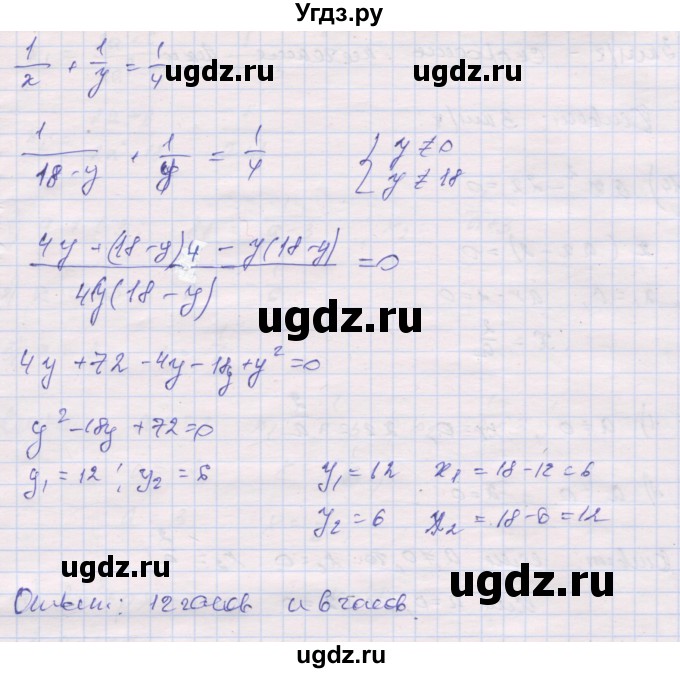 Угдз.ру
1/x + 1/y = 1/4
ugdz.ru ugdz.ru
1/(18-y) + 1/y = 1/4 { y ≠ 0
y ≠ 18
(4y + (18-y)4 - y(18-y))/(4y(18-y)) = 0
ugdz.ru
4y + 72 - 4y - 18y + y² = 0
y² - 18y + 72 = 0
y₁ = 12; y₂ = 6 y₁ = 12 x₁ = 18-12 = 6
y₂ = 6 x₂ = 18-6 = 12
ugdz.ru ugdz.ru
Ответ: 12 часов и 6 часов.
ugdz.ru ugdz.ru
ugdz.ru